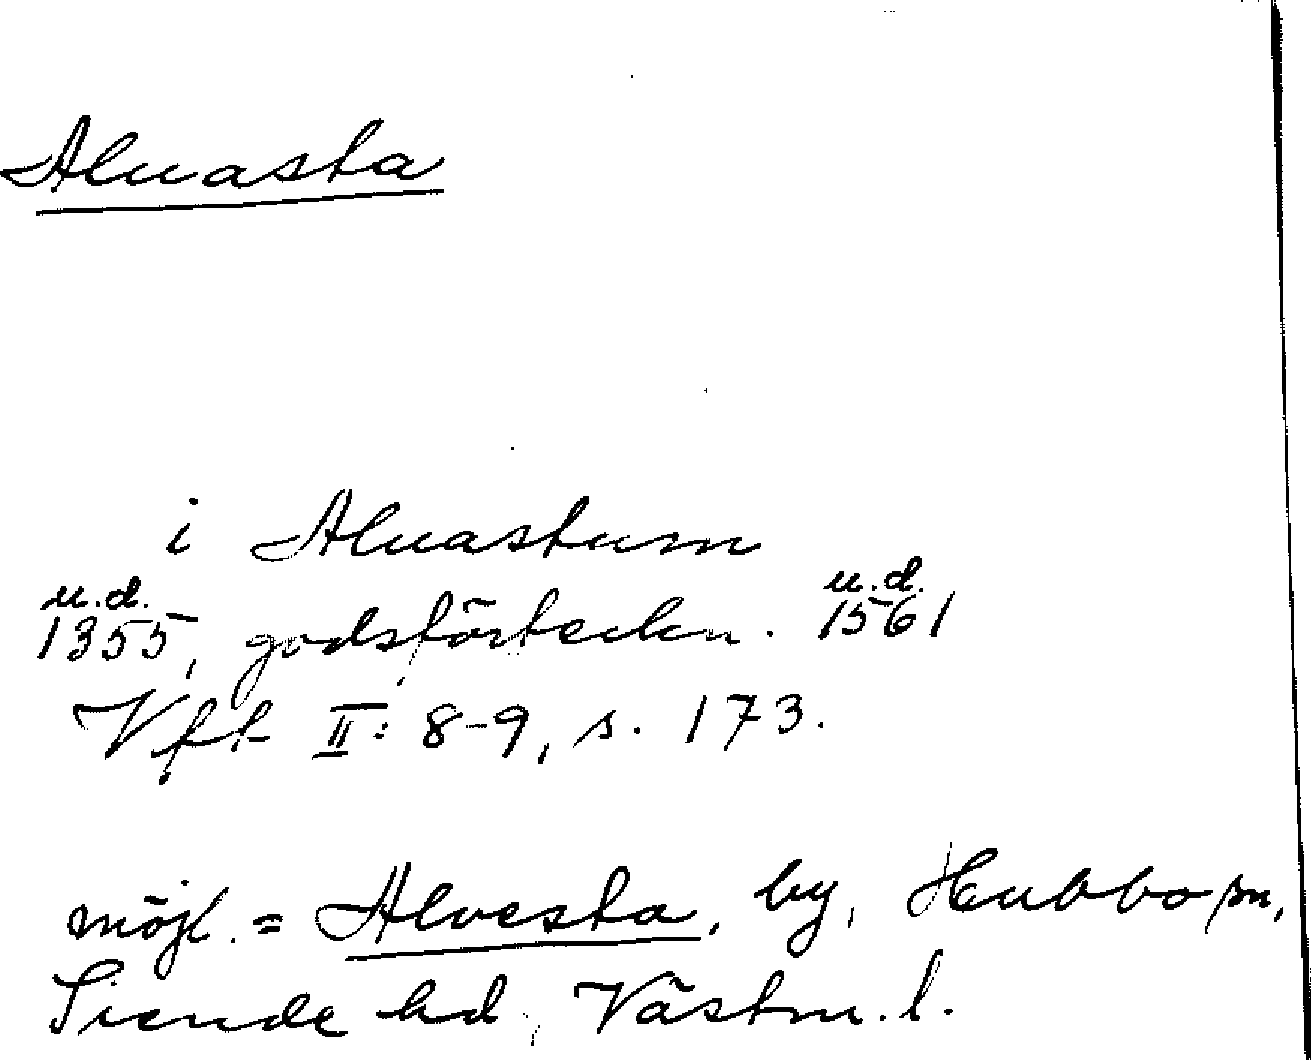 Aluasta
i Aluastum
u.d. u.d.
1355, godsförteckn. 1561
Vfk II: 8-9, s. 173.
möjl. = Alvesta, by, Hubbo sn,
Siende hd, Västm. l.